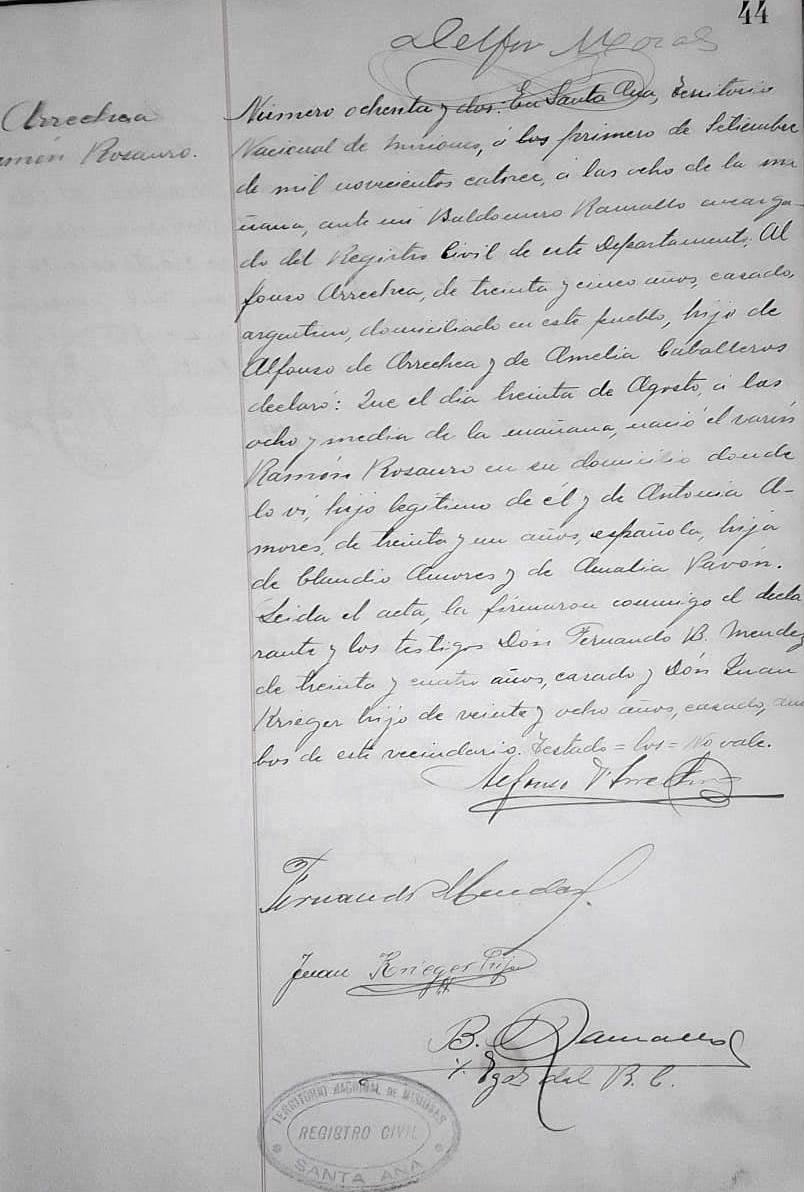 44
Delfor Morals
Arrechea
Ramón Rosauro.
Número ochenta y dos: En Santa Ana, Territorio
Nacional de Misiones, á los primero de Setiembre
de mil novecientos catorce, á las ocho de la ma
ñana, ante mi Baldomero Ramallo encarga-
do del Registro Civil de este Departamento; Al
fonso Arrechea, de treinta y cinco años, casado,
argentino, domiciliado en este pueblo, hijo de
Alfonso de Arrechea y de Amelia Caballeros
declaró: Que el dia treinta de Agosto, á las
ocho y media de la mañana, nació el varón
Ramón Rosauro en su domicilio donde
lo ví, hijo legítimo de él y de Antonia A-
mores, de treinta y un años, española, hija
de Claudio Amores y de Amalia Pavón.
Leida el acta, la firmaron conmigo el decla
rante y los testigos Don Fernando B. Mendez
de treinta y cuatro años, casado y Dón Juan
Krieger hijo de veinte y ocho años, casado, am
bos de este vecindario. Testado = los = No vale.
Alfonso Arrechea
Fernando Mendez
Juan Krieger hijo
B. Ramallo
Egdo del R. C.
TERRITORIO NACIONAL DE MISIONES
REGISTRO CIVIL
SANTA ANA